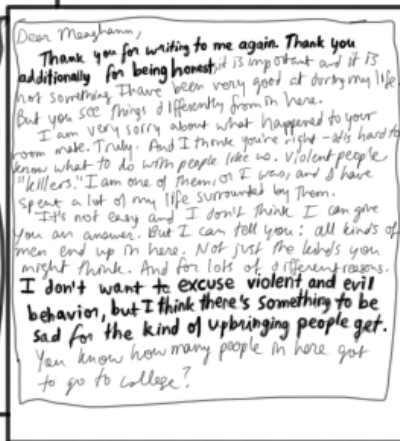 Dear Meaghann,
Thank you for writing to me again. Thank you
additionally for being honest, it is important and it is
not something I have been very good at during my life.
But you see things differently from in here.
I am very sorry about what happened to your
room mate. Truly. And I think you're right - it is hard to
know what to do with people like us. Violent people
"killers." I am one of them, or I was, and I have
spent a lot of my life surrounded by them.
It's not easy and I don't think I can give
you an answer. But I can tell you: all kinds of
men end up in here. Not just the kinds you
might think. And for lots of different reasons.
I don't want to excuse violent and evil
behavior, but I think there's something to be
sad for the kind of upbringing people get.
You know how many people in here got
to go to college?